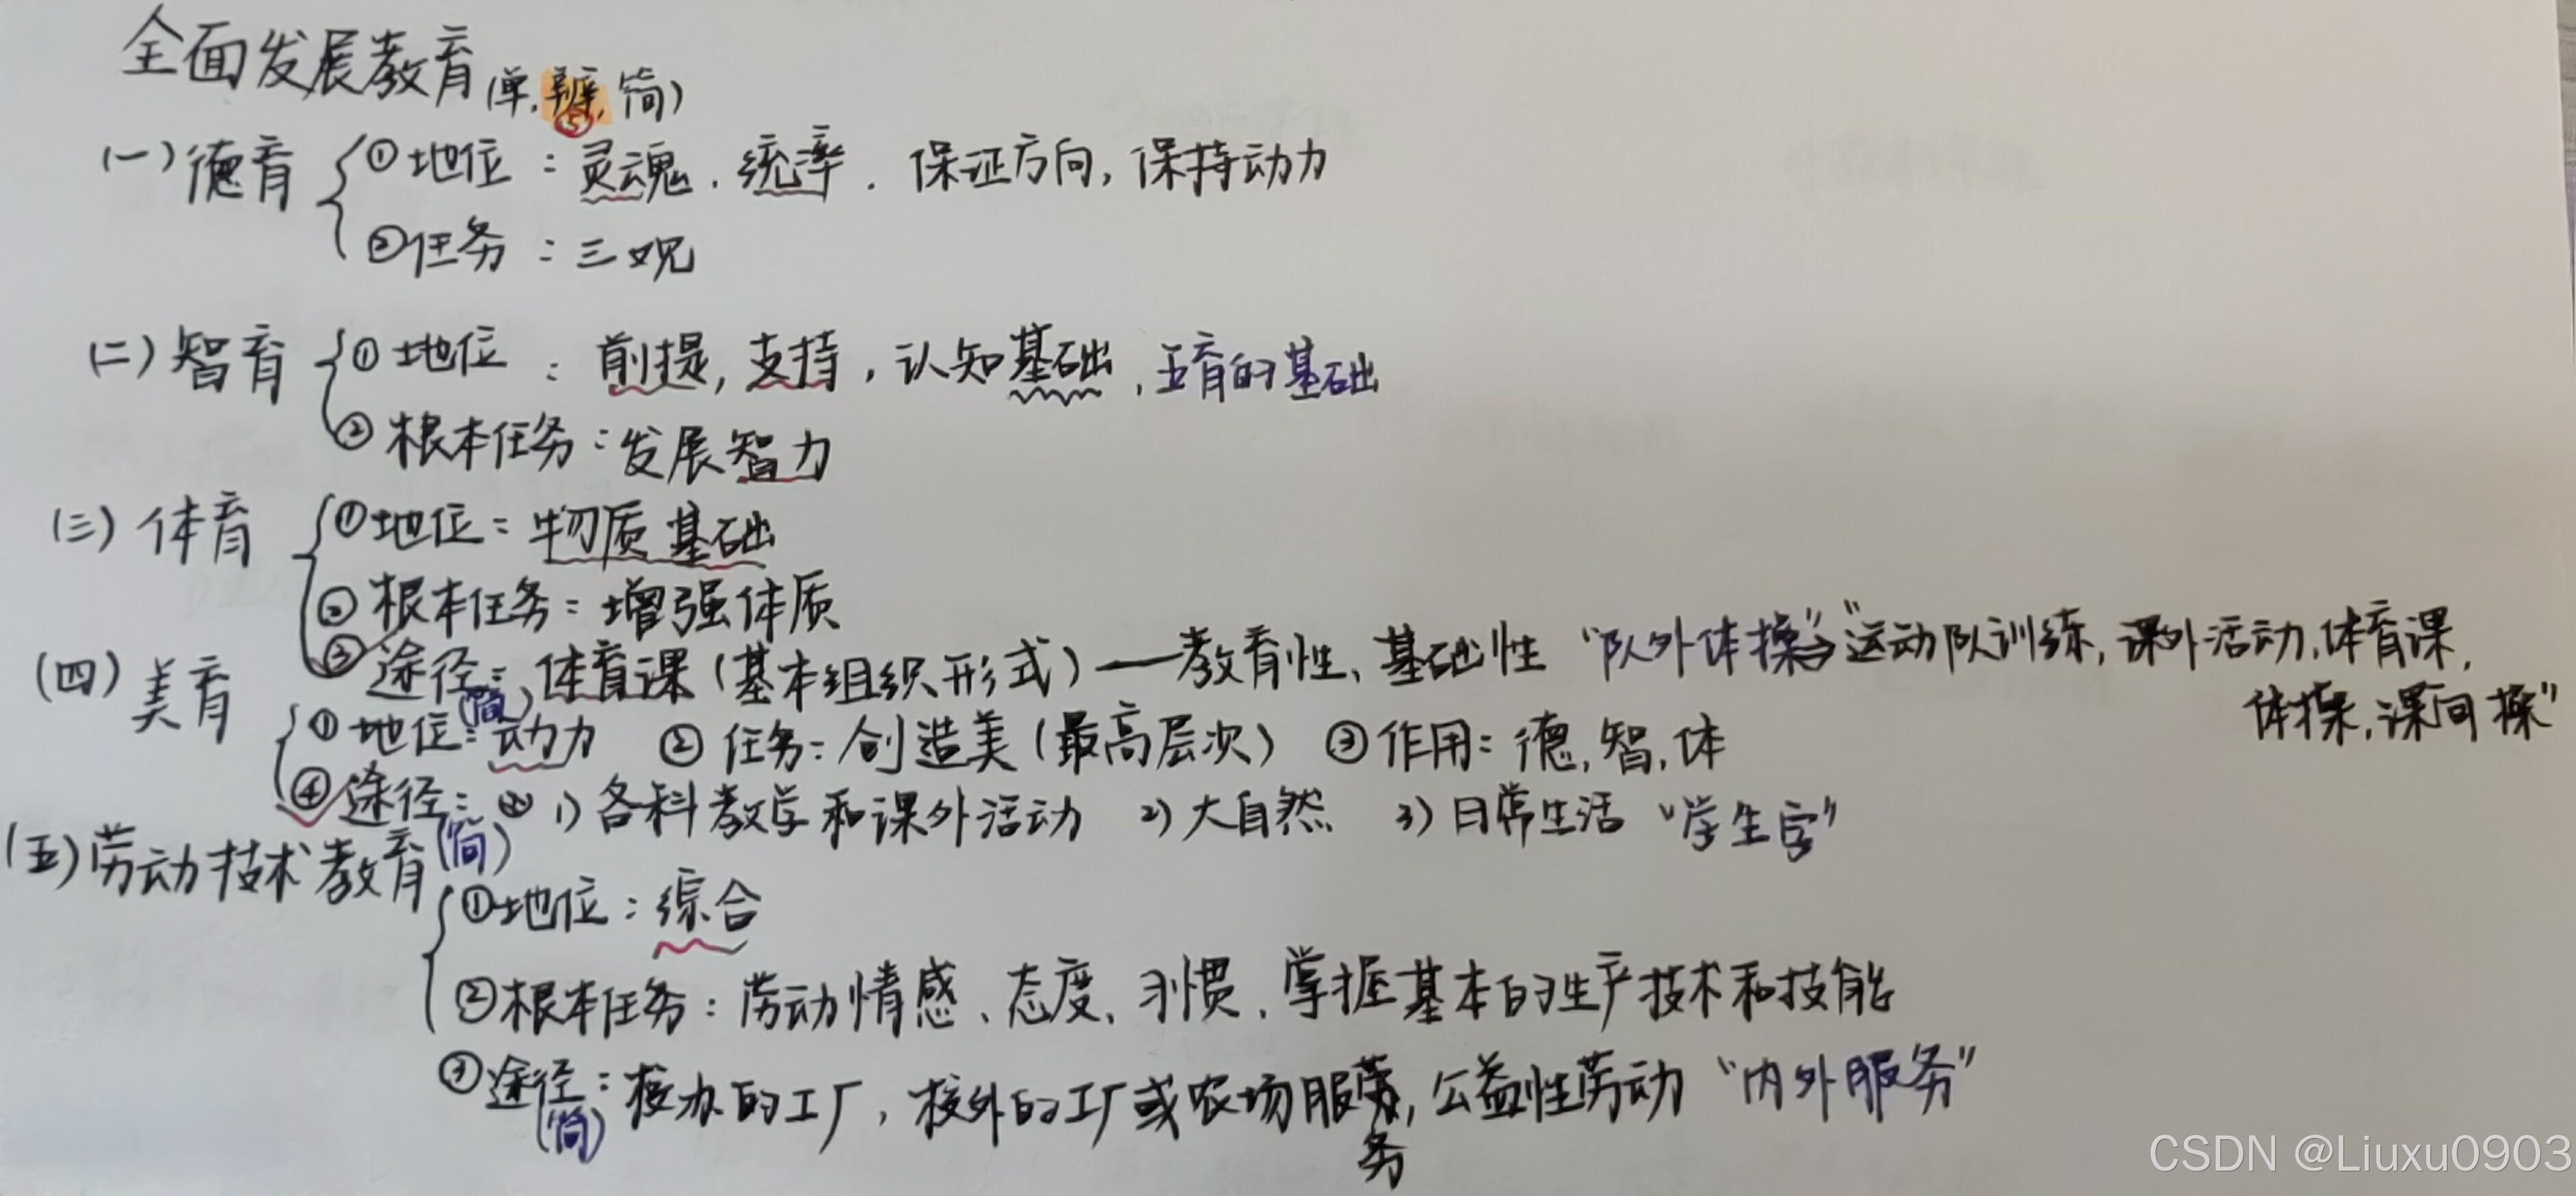 全面发展教育(单,辨,简)
⑤
(一)德育 ①地位:灵魂.统率.保证方向,保持动力
②任务:三观
(二)智育 ①地位:前提,支持,认知基础,五育的基础
②根本任务:发展智力
(三)体育 ①地位:物质基础
②根本任务:增强体质
③途径:体育课(基本组织形式)——教育性、基础性 “队外体操”→“运动队训练,课外活动,体育课,
体操,课间操”
(简)
(四)美育 ①地位:动力 ②任务:创造美(最高层次) ③作用:德,智,体
④途径:1)各科教学和课外活动 2)大自然 3)日常生活 “学生字”
(简)
(五)劳动技术教育 ①地位:综合
②根本任务:劳动情感、态度、习惯,掌握基本的生产技术和技能
③途径:校办的工厂,校外的工厂或农场服务,公益性劳动 “内外服务”
(简)
CSDN @Liuxu0903